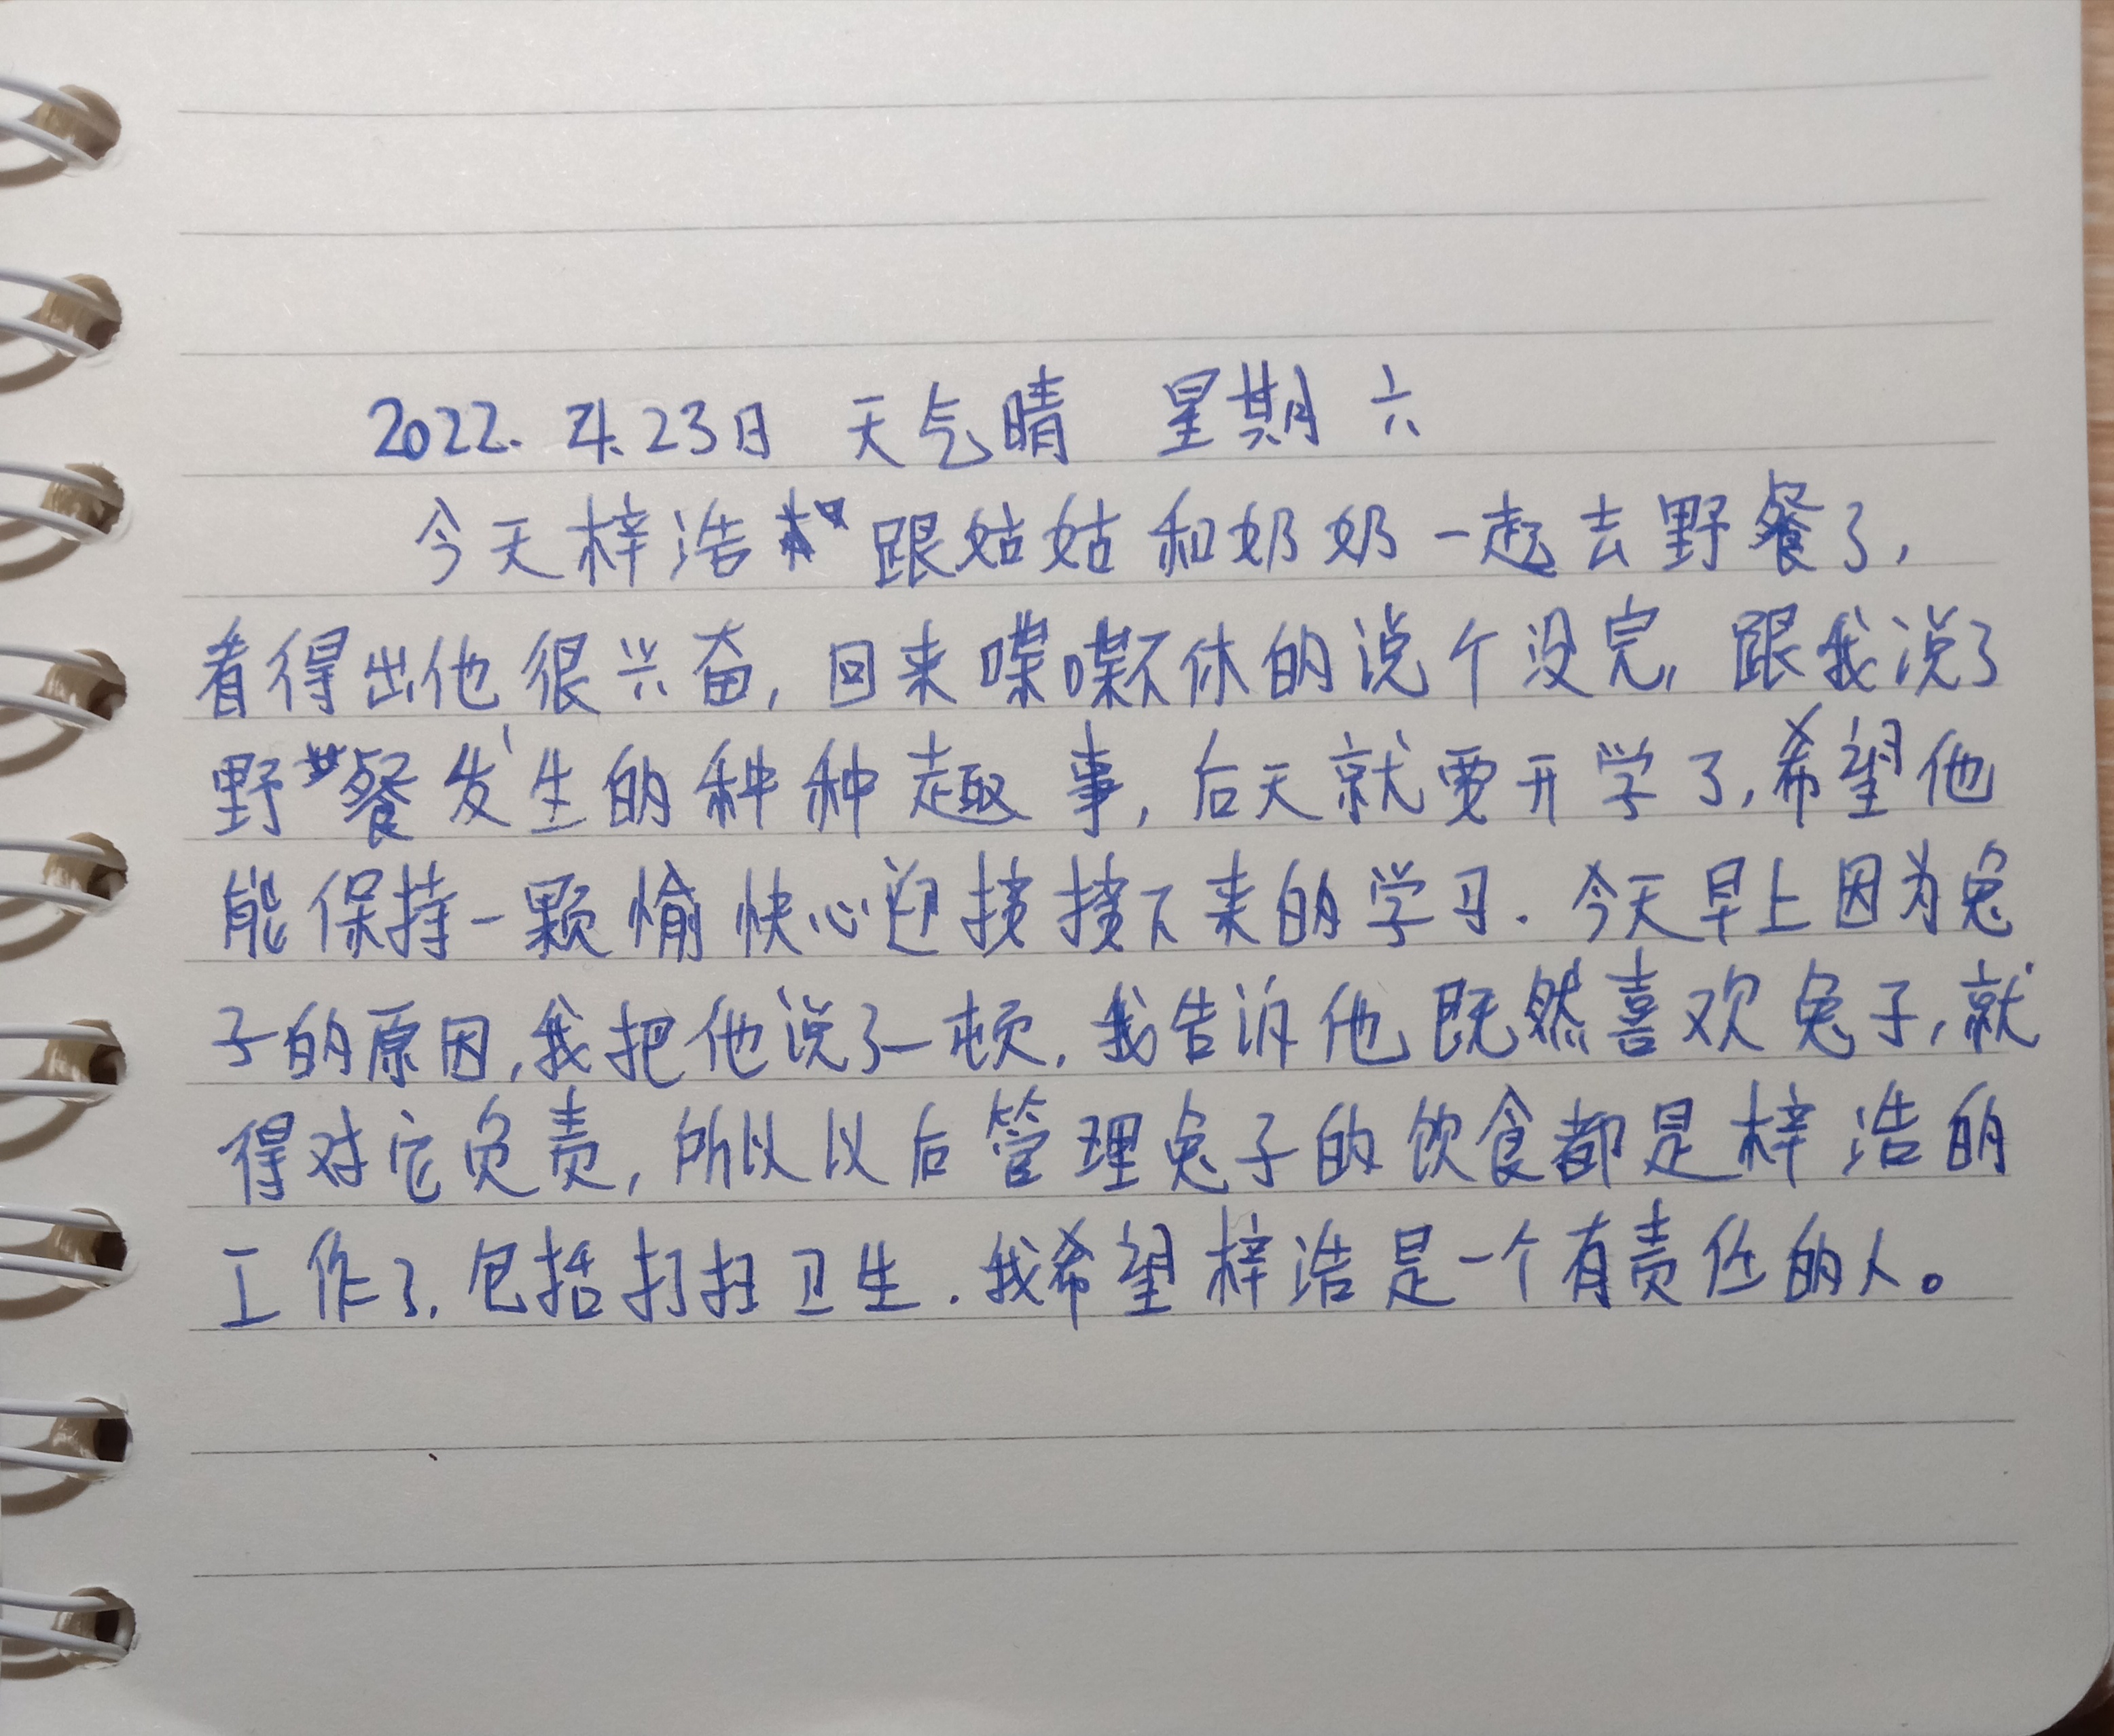 2022. 4.23日 天气晴 星期六
今天梓浩跟姑姑和奶奶一起去野餐了,
看得出他很兴奋,回来喋喋不休的说个没完,跟我说了
野餐发生的种种趣事,后天就要开学了,希望他
能保持一颗愉快心迎接接下来的学习.今天早上因为兔
子的原因,我把他说了一顿.我告诉他既然喜欢兔子,就
得对它负责,所以以后管理兔子的饮食都是梓浩的
工作了.包括打扫卫生.我希望梓浩是一个有责任的人。